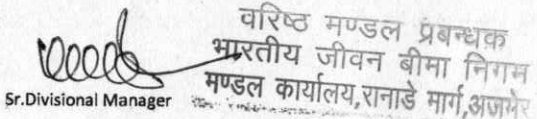 वरिष्ठ मण्डल प्रबन्धक
भारतीय जीवन बीमा निगम
मण्डल कार्यालय,रानाडे मार्ग,अजमेर
Sr.Divisional Manager